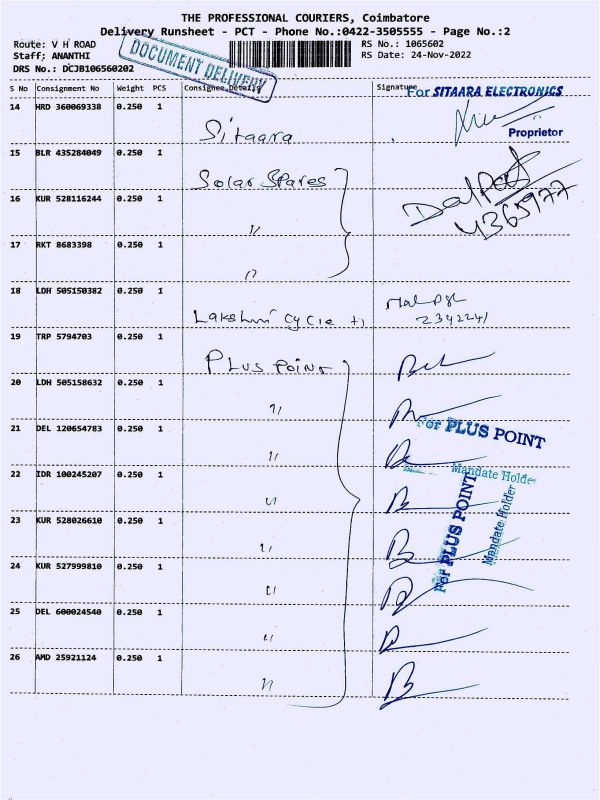 THE PROFESSIONAL COURIERS, Coimbatore
Delivery Runsheet - PCT - Phone No.:0422-3505555 - Page No.:2
Route: V H ROAD
RS No.: 1065602
Staff: ANANTHI
RS Date: 24-Nov-2022
DRS No.: DCJB106560202
DOCUMENT DELIVERY
S No Consignment No Weight PCS Consignee Details Signature
For SITAARA ELECTRONICS
14 HRD 360069338 0.250 1
Sitaara
Proprietor
15 BLR 435284049 0.250 1
Solar Spares
16 KUR 528116244 0.250 1
"
Dalpat
4365977
17 RKT 8683398 0.250 1
"
18 LDH 505150382 0.250 1
Lakshmi Cycle
2342241
19 TRP 5794703 0.250 1
PLUS POINT
20 LDH 505158632 0.250 1
"
For PLUS POINT
21 DEL 120654783 0.250 1
"
Mandate Holder
22 IDR 100245207 0.250 1
"
For PLUS POINT
Mandate Holder
23 KUR 528026610 0.250 1
"
24 KUR 527999810 0.250 1
"
25 DEL 600024540 0.250 1
"
26 AMD 25921124 0.250 1
"